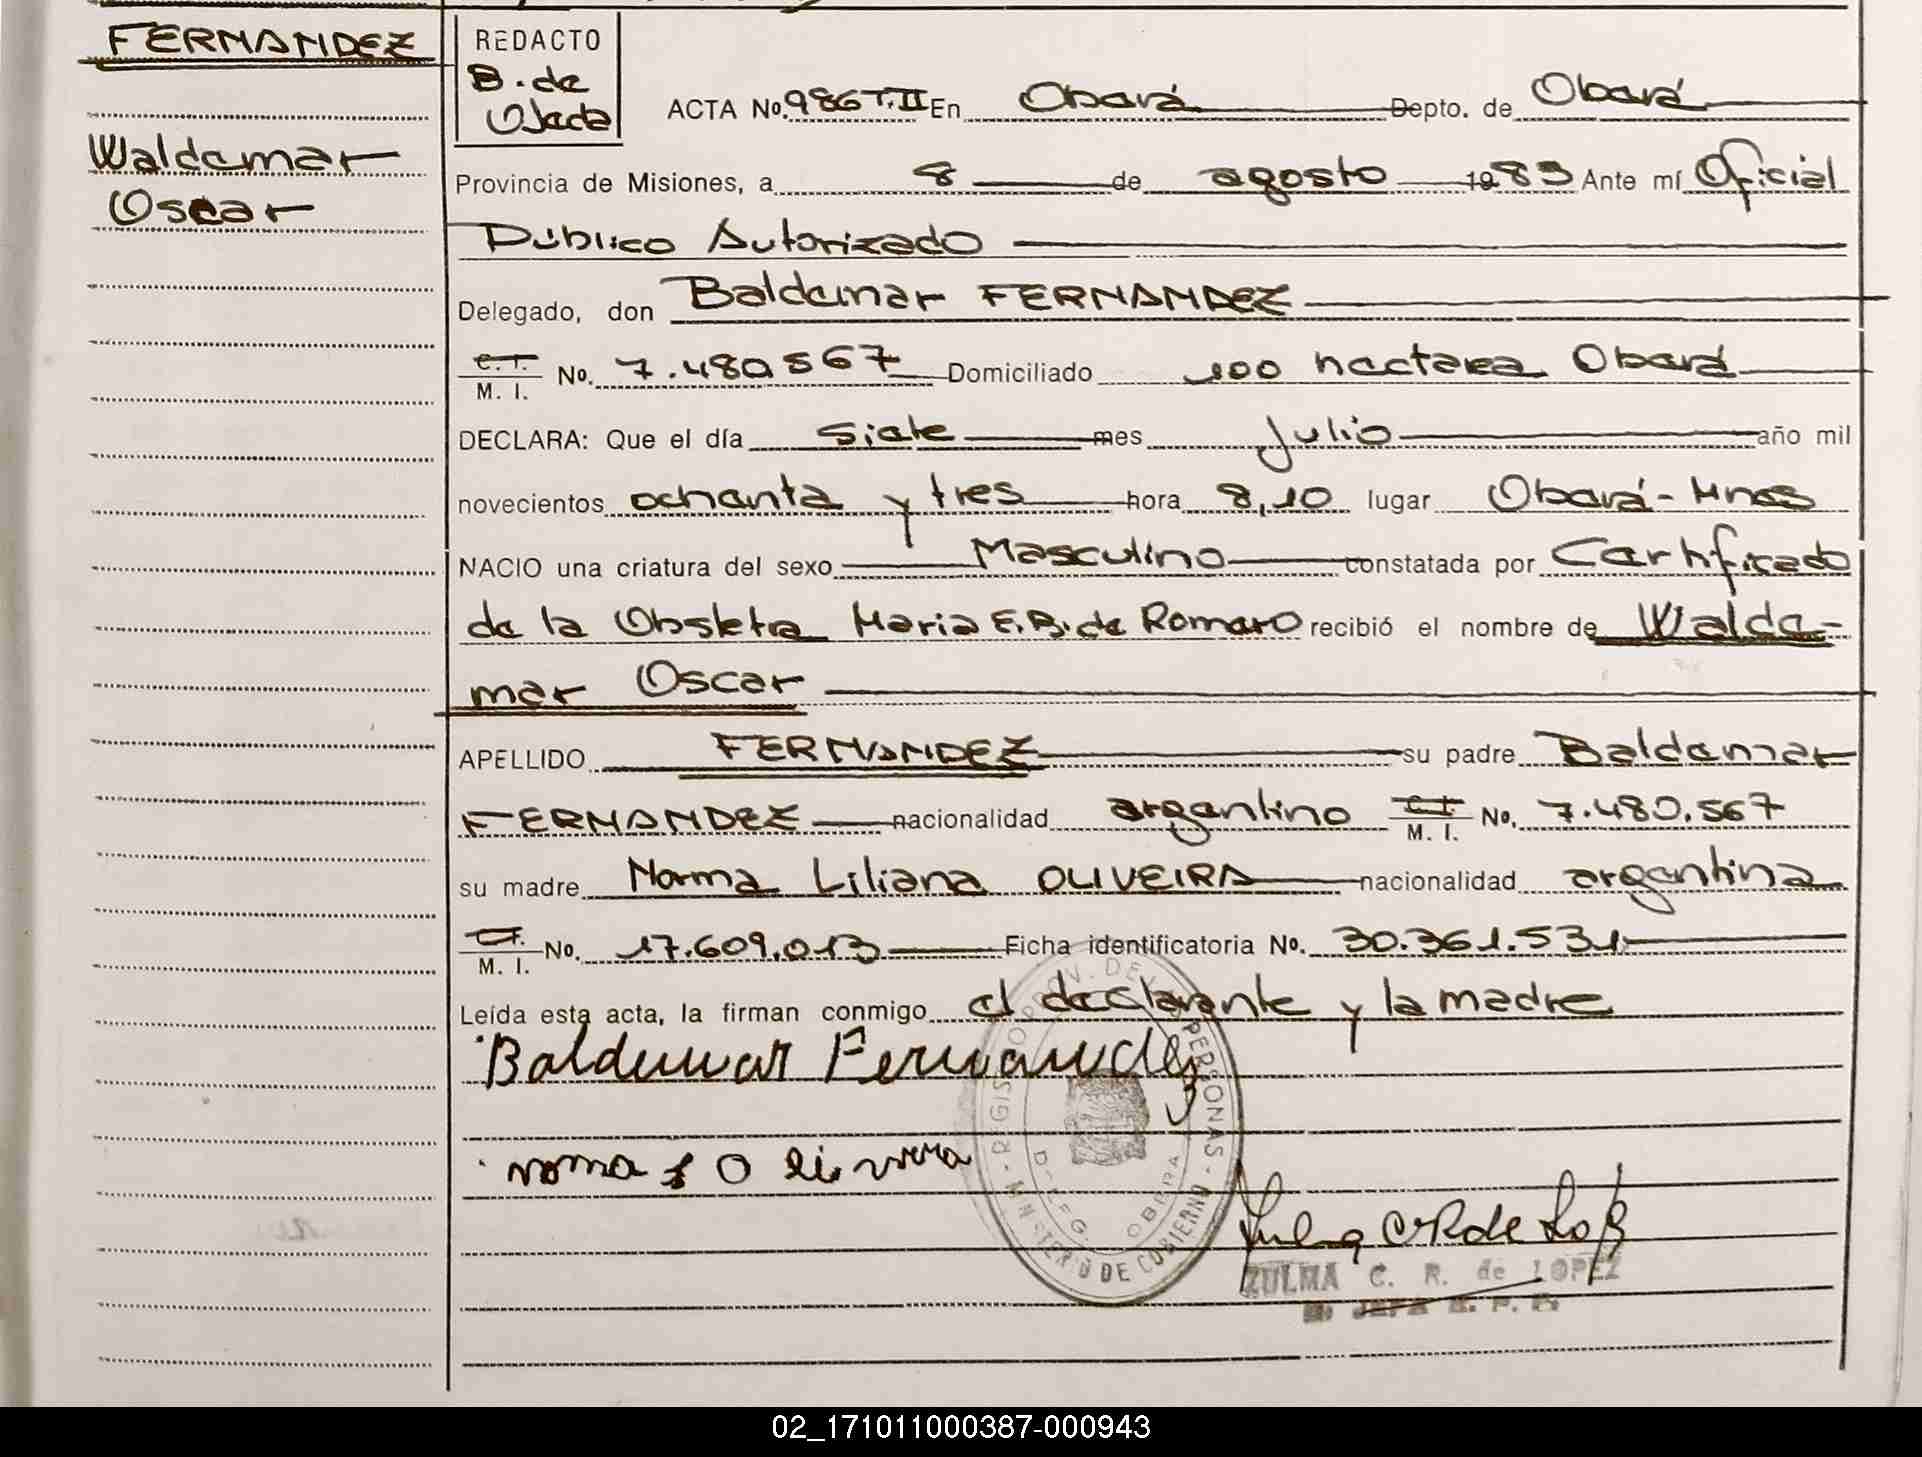 FERNANDEZ
Waldemar
Oscar
REDACTO
B. de
Ojeda
ACTA No. 986 T.II En Oberá Depto. de Oberá
Provincia de Misiones, a 8 de agosto 1983 Ante mí Oficial
Público Autorizado
Delegado, don Baldemar FERNANDEZ
C.I. M. I. No. 7.480567 Domiciliado 100 hectarea Oberá
DECLARA: Que el día siete mes Julio año mil
novecientos ochenta y tres hora 8,10 lugar Oberá - Mnes
NACIO una criatura del sexo Masculino constatada por Certificado
de la Obstetra Maria E. B. de Romero recibió el nombre de Walde-
mar Oscar
APELLIDO FERNANDEZ su padre Baldemar
FERNANDEZ nacionalidad argentino C.I. M. I. No. 7.480.567
su madre Norma Liliana OLIVEIRA nacionalidad argentina
C.I. M. I. No. 17.609.013 Ficha identificatoria No. 30.361.531
Leída esta acta, la firman conmigo el declarante y la madre
Baldemar Fernandez
REGISTRO PROV. DE LAS PERSONAS - MINISTERIO DE GOBIERNO -
DELEG. OBERA
ZULMA C. R. de LOPEZ
JEFA
02_171011000387-000943